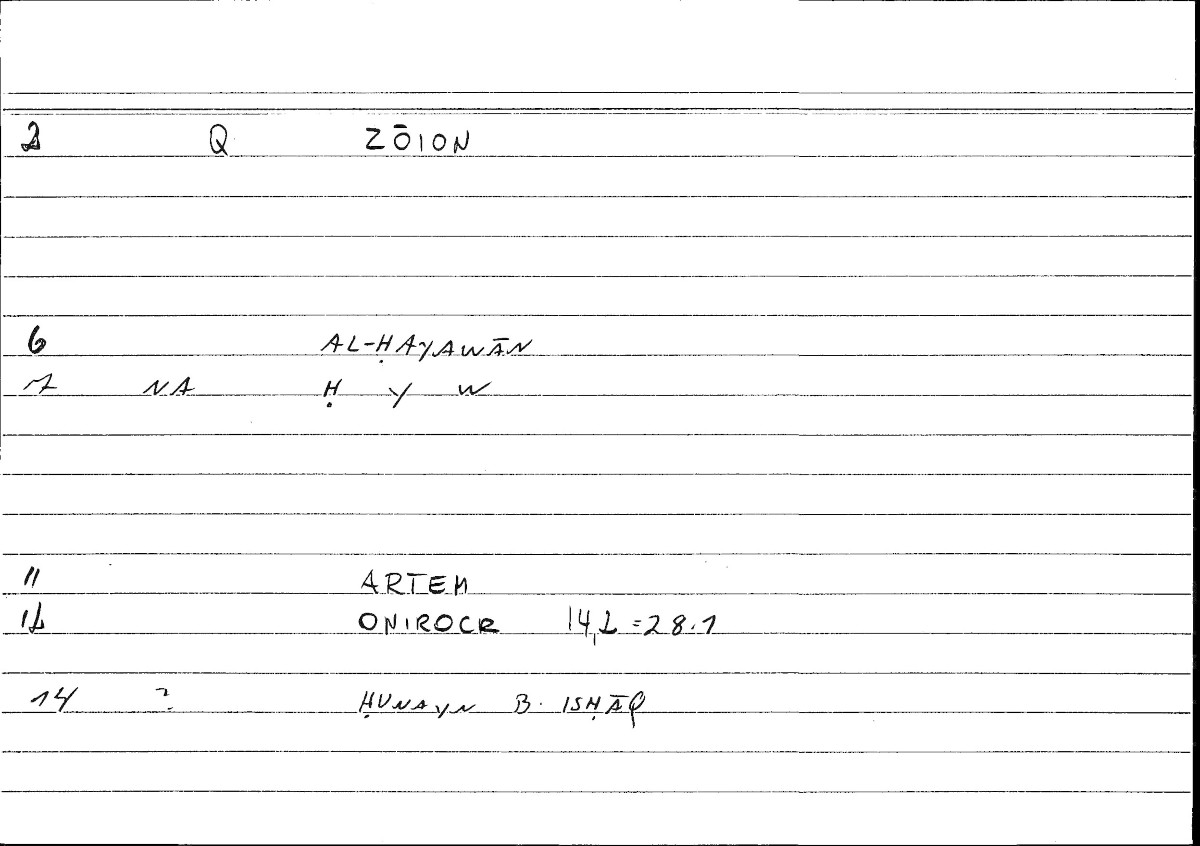 2 Q ZŌION
6 AL-ḤAYAWĀN
7 NA Ḥ Y W
11 ARTEM
12 ONIROCR 14,2 = 28.1
14 ? ḤUNAYN B. ISḤĀQ